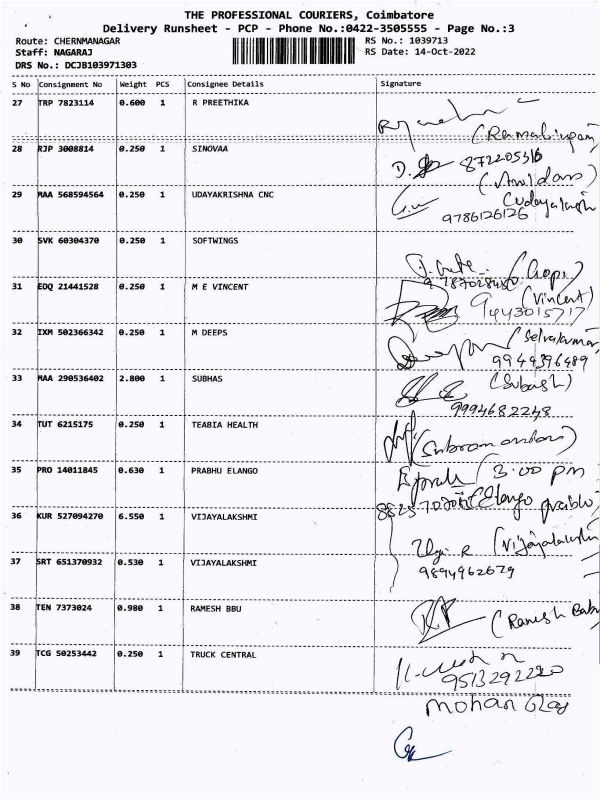 THE PROFESSIONAL COURIERS, Coimbatore
Delivery Runsheet - PCP - Phone No.:0422-3505555 - Page No.:3
Route: CHERNMANAGAR
Staff: NAGARAJ
DRS No.: DCJB103971303
RS No.: 1039713
RS Date: 14-Oct-2022
S No Consignment No Weight PCS Consignee Details Signature
27 TRP 7823114 0.600 1 R PREETHIKA
28 RJP 3008814 0.250 1 SINOVAA
29 MAA 568594564 0.250 1 UDAYAKRISHNA CNC
9786126126
30 SVK 60304370 0.250 1 SOFTWINGS
(Gopi)
31 EDQ 21441528 0.250 1 M E VINCENT
(Vincent)
9443015717
32 IXM 502366342 0.250 1 M DEEPS
(Selvakumar
9944396489
33 MAA 290536402 2.800 1 SUBHAS
(Subash)
9994682248
34 TUT 6215175 0.250 1 TEABIA HEALTH
35 PRO 14011845 0.630 1 PRABHU ELANGO
3.00 pm
(Elango prabhu)
36 KUR 527094270 6.550 1 VIJAYALAKSHMI
(Vijayalakshmi
37 SRT 651370932 0.530 1 VIJAYALAKSHMI
9894962679
38 TEN 7373024 0.980 1 RAMESH BBU
(Ramesh Babu
39 TCG 50253442 0.250 1 TRUCK CENTRAL
9513292220
Mohan Raj